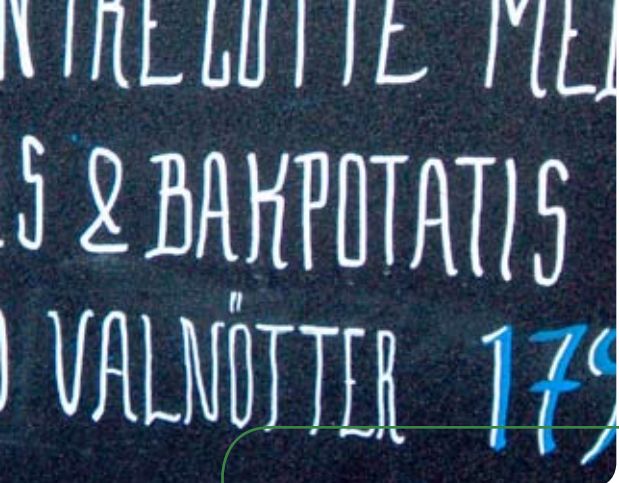 NTRECOTTE MED
S & BAKPOTATIS
VALNÖTTER 179